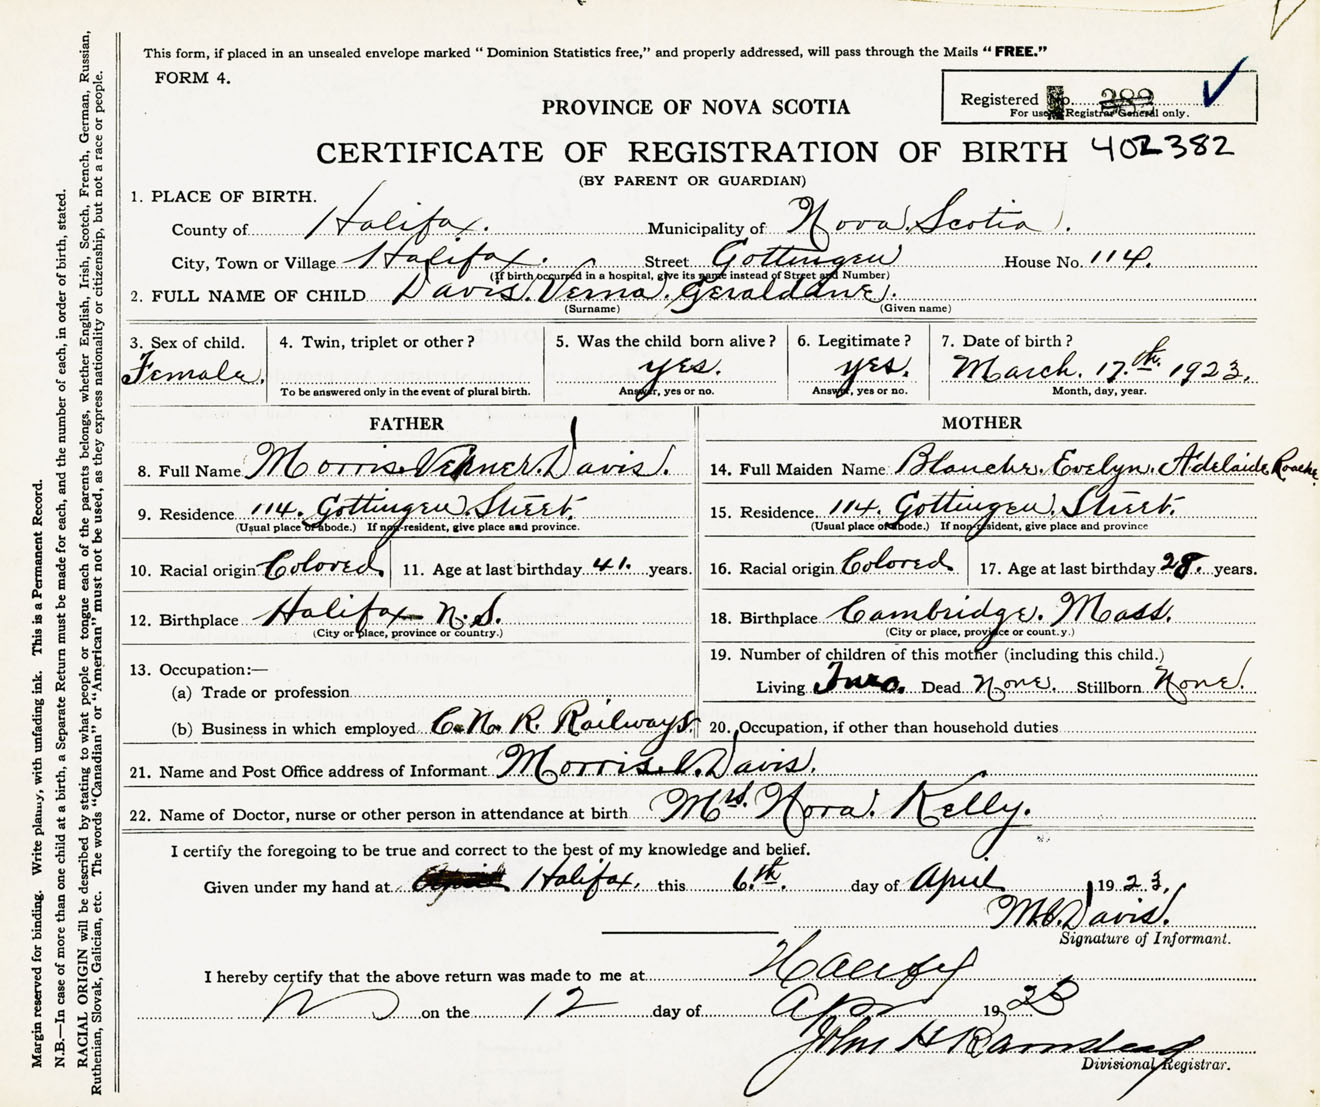 This form, if placed in an unsealed envelope marked “ Dominion Statistics free,” and properly addressed, will pass through the Mails “ FREE.”
FORM 4.
PROVINCE OF NOVA SCOTIA
Registered No. 382
For use of Registrar General only.
CERTIFICATE OF REGISTRATION OF BIRTH 402382
(BY PARENT OR GUARDIAN)
1. PLACE OF BIRTH.
County of Halifax. Municipality of Nova Scotia.
City, Town or Village Halifax. Street Gottingen House No. 114.
(If birth occurred in a hospital, give its name instead of Street and Number)
2. FULL NAME OF CHILD Davis. Verna. Geraldane.
(Surname) (Given name)
3. Sex of child. 4. Twin, triplet or other? 5. Was the child born alive? 6. Legitimate? 7. Date of birth?
Female. yes. yes. March. 17.th. 1923.
To be answered only in the event of plural birth. Answer, yes or no. Answer, yes or no. Month, day, year.
FATHER MOTHER
8. Full Name Morris. Verner. Davis. 14. Full Maiden Name Blanche. Evelyn. Adelaide Roache.
9. Residence 114. Gottingen Street. 15. Residence 114. Gottingen Street.
(Usual place of abode.) If non-resident, give place and province. (Usual place of abode.) If non-resident, give place and province
10. Racial origin Colored 11. Age at last birthday 41. years. 16. Racial origin Colored 17. Age at last birthday 28. years.
12. Birthplace Halifax N.S. 18. Birthplace Cambridge. Mass.
(City or place, province or country.) (City or place, province or count.y.)
13. Occupation:— 19. Number of children of this mother (including this child.)
(a) Trade or profession Living Two. Dead None. Stillborn None.
(b) Business in which employed C.N.R. Railways. 20. Occupation, if other than household duties
21. Name and Post Office address of Informant Morris. V. Davis.
22. Name of Doctor, nurse or other person in attendance at birth Mrs. Nora. Kelly.
I certify the foregoing to be true and correct to the best of my knowledge and belief.
Given under my hand at Halifax, this 6.th. day of April 1923.
M.V. Davis.
Signature of Informant.
I hereby certify that the above return was made to me at Halifax
N on the 12 day of Apr 1923
John H Barnstead
Divisional Registrar.
Margin reserved for binding. Write plainly, with unfading ink. This is a Permanent Record.
N.B.—In case of more than one child at a birth, a Separate Return must be made for each, and the number of each, in order of birth, stated.
RACIAL ORIGIN will be described by stating to what people or tongue each of the parents belongs, whether English, Irish, Scotch, French, German, Russian,
Ruthenian, Slovak, Galician, etc. The words “Canadian” or “American” must not be used, as they express nationality or citizenship, but not a race or people.